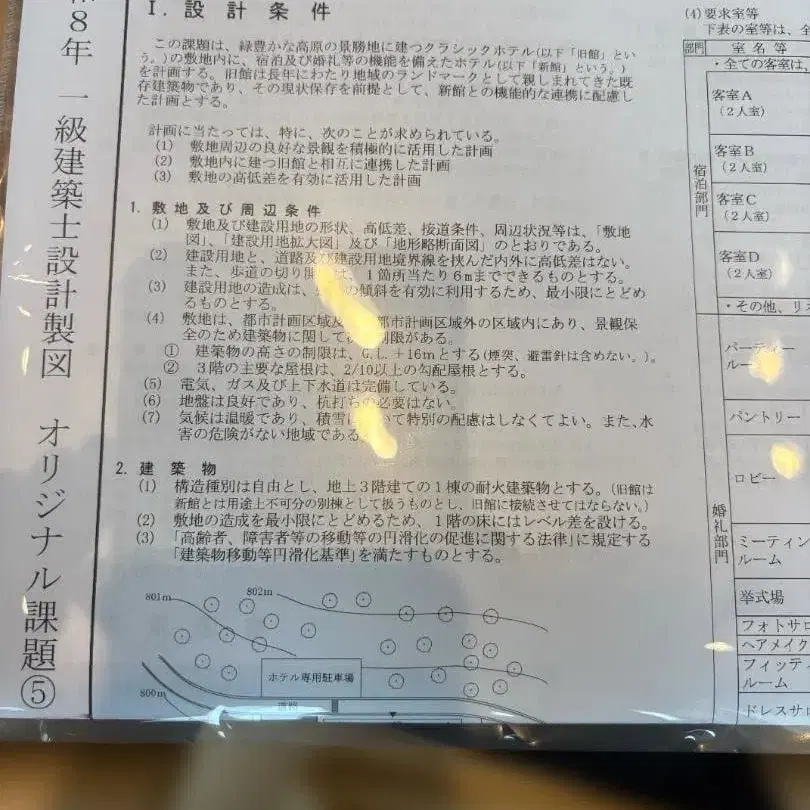 ８年 一級建築士設計製図 オリジナル課題⑤
Ⅰ．設計条件
この課題は、緑豊かな高原の景勝地に建つクラシックホテル(以下「旧館」とい
う。)の敷地内に、宿泊及び婚礼等の機能を備えたホテル(以下「新館」という。)
を計画する。旧館は長年にわたり地域のランドマークとして親しまれてきた既
存建築物であり、その現状保存を前提として、新館との機能的な連携に配慮し
た計画とする。
計画に当たっては、特に、次のことが求められている。
(1) 敷地周辺の良好な景観を積極的に活用した計画
(2) 敷地内に建つ旧館と相互に連携した計画
(3) 敷地の高低差を有効に活用した計画
1．敷地及び周辺条件
(1) 敷地及び建設用地の形状、高低差、接道条件、周辺状況等は、「敷地
図」、「建設用地拡大図」及び「地形略断面図」のとおりである。
(2) 建設用地と、道路及び建設用地境界線を挟んだ内外に高低差はない。
また、歩道の切り開 は、１箇所当たり６ｍまでできるものとする。
(3) 建設用地の造成は、 の傾斜を有効に利用するため、最小限にとどめ
るものとする。
(4) 敷地は、都市計画区域及 都市計画区域外の区域内にあり、景観保
全のため建築物に関して 制限がある。
① 建築物の高さの制限は、G.L.＋16ｍとする(煙突、避雷針は含めない。)。
② ３階の主要な屋根は、2/10以上の勾配屋根とする。
(5) 電気、ガス及び上下水道は完備している。
(6) 地盤は良好であり、杭打ち 必要はない。
(7) 気候は温暖であり、積雪 いて特別の配慮はしなくてよい。また、水
害の危険がない地域である。
2．建築物
(1) 構造種別は自由とし、地上３階建ての１棟の耐火建築物とする。(旧館は
新館とは用途上不可分の別棟として扱うものとし、旧館に接続させてはならない。)
(2) 敷地の造成を最小限にとどめるため、１階の床にはレベル差を設ける。
(3) 「高齢者、障害者等の移動等の円滑化の促進に関する法律」に規定する
「建築物移動等円滑化基準」を満たすものとする。
801m
802m
ホテル専用駐車場
800m
道路
(4) 要求室等
下表の室等は、全
部門 室名等
・全ての客室は、
宿泊部門
客室Ａ
(２人室)
客室Ｂ
(２人室)
客室Ｃ
(２人室)
客室Ｄ
(２人室)
・その他、リネ
婚礼部門
パーティー
ルーム
パントリー
ロビー
ミーティン
ルーム
挙式場
フォトサロ
ヘアメイク
フィッティ
ルーム
ドレスサロ